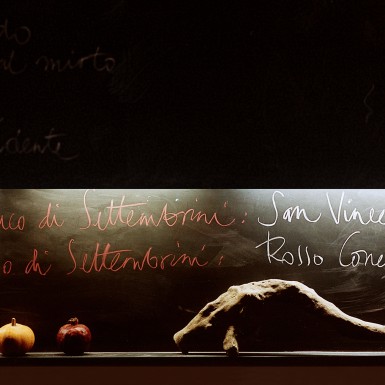 do
misto
idente
nco di Settembrini: San Vince
o di Settembrini: Rosso Cone